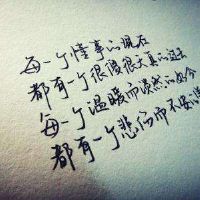 每一个懂事的现在
都有一个很傻很天真的过去
每一个温暖而淡然的如今
都有一个悲伤而不安